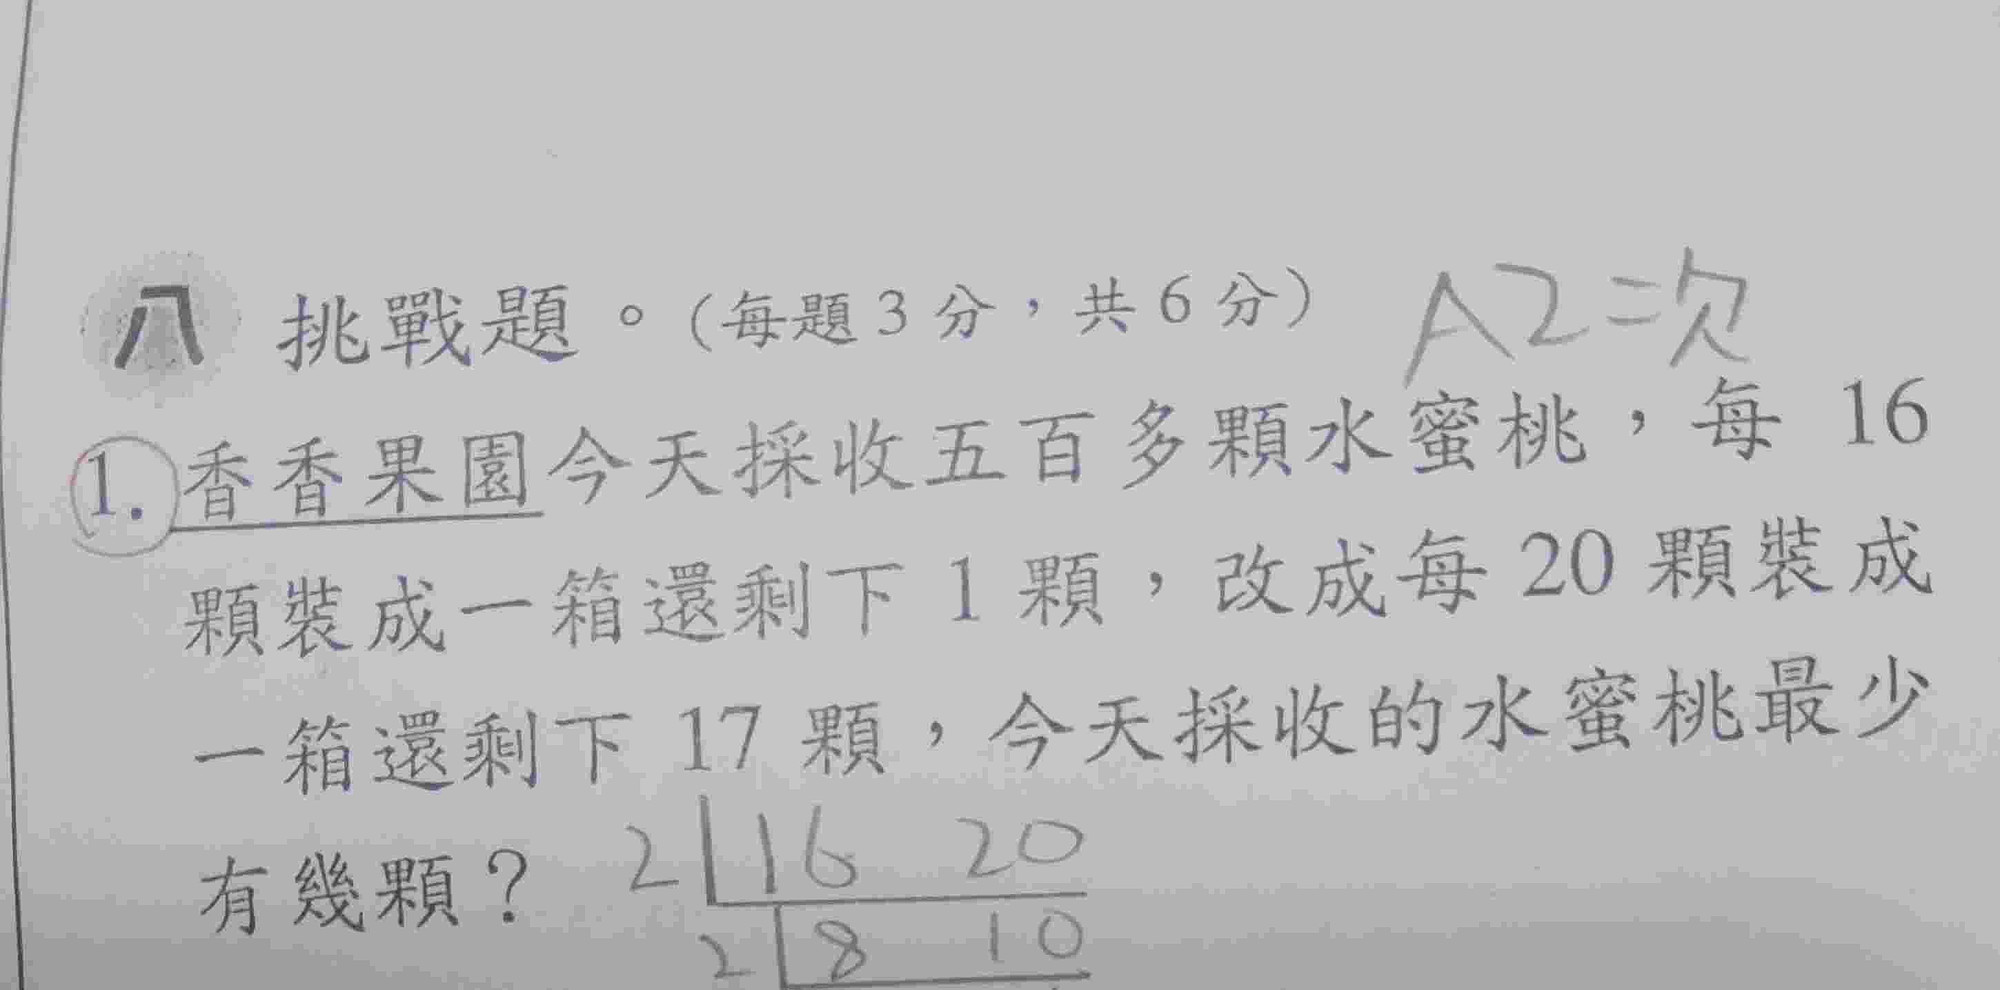 八 挑戰題。(每題3分，共6分) A2二次
1. 香香果園今天採收五百多顆水蜜桃，每 16
顆裝成一箱還剩下 1 顆，改成每 20 顆裝成
一箱還剩下 17 顆，今天採收的水蜜桃最少
有幾顆？ 2 16 20
2 8 10